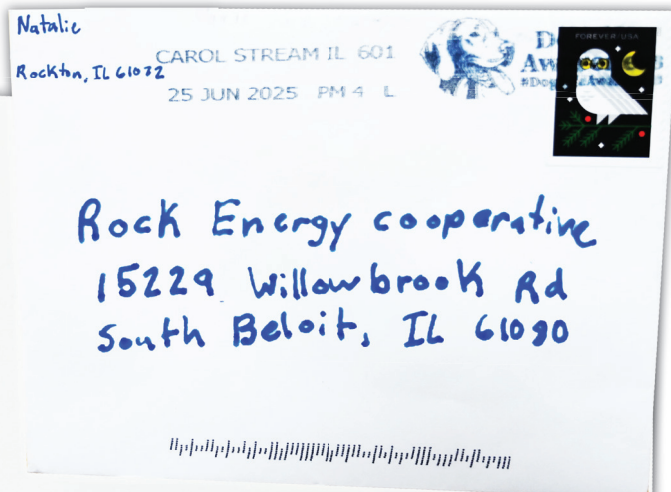 Natalie
Rockton, IL 61072
CAROL STREAM IL 601
25 JUN 2025 PM 4 L
FOREVER/USA
Rock Energy cooperative
15229 Willowbrook Rd
South Beloit, IL 61080